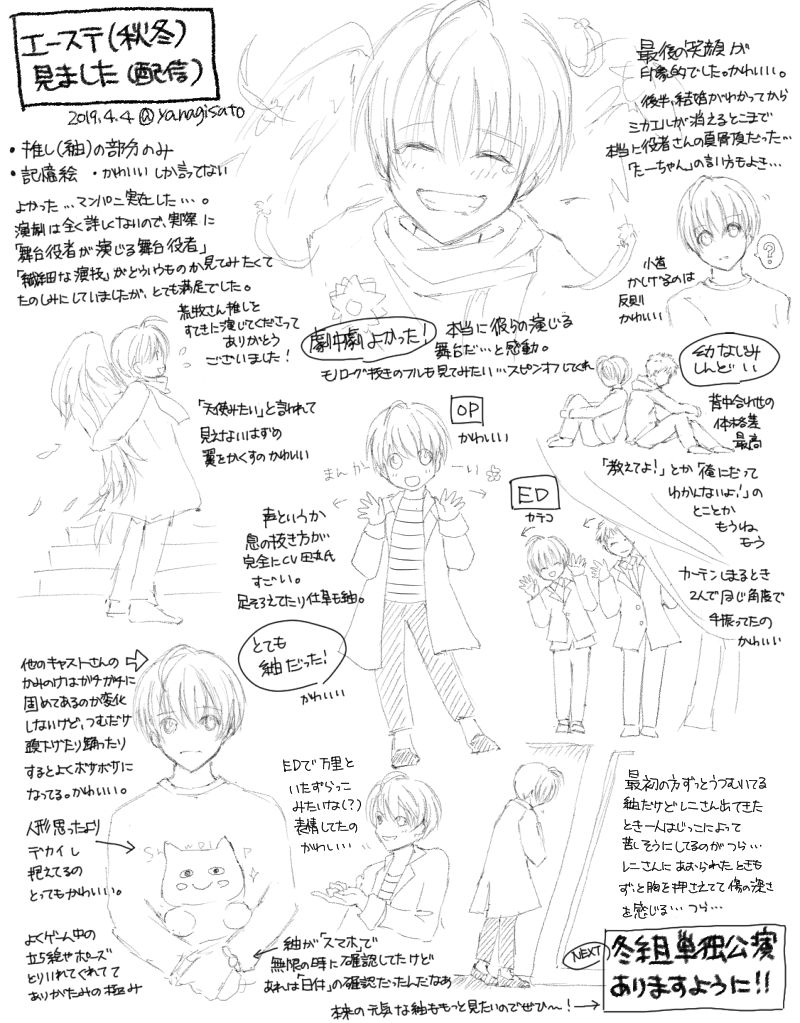 エーステ(秋冬)
見ました(配信)
2019.4.4 @yanagisato
・推し(紬)の部分のみ
・記憶絵 ・かわいいしか言ってない
よかった…マンパニ実在した…。
演劇は全く詳しくないので、実際に
「舞台役者が演じる舞台役者」
「繊細な演技」がどういうものか見てみたくて
たのしみにしていましたが、とても満足でした。
荒牧さん推しと
すてきに演じてくださって
ありがとう
ございました!
最後の笑顔が
印象的でした。かわいい。
後半、結婚がわかってから
ミカエルが消えるとこまで
本当に役者さんの真骨頂だった…
「たーちゃん」の言い方もよき…
小首
かしげるのは
反則
かわいい
?
劇中劇よかった!
本当に彼らの演じる
舞台だ…と感動。
モノローグ抜きのフルも見てみたい…スピンオフしてくれ
幼なじみ
しんどい
背中合わせの
体格差
最高
「教えてよ!」とか「俺にだって
わかんないよ!」の
とことか
もうね
もう
「天使みたい」と言われて
見えないはずの
翼をかくすのかわいい
OP
かわいい
まんかーい
声というか
息の抜き方が
完全にCV田丸氏
すごい。
足そろえてたり仕草も紬。
とても
紬だった!
かわいい
ED
カテコ
カーテンしまるとき
2人で同じ角度で
手振ってたの
かわいい
他のキャストさんの
かみのけはガチガチに
固めてあるのか変化
しないけど、つむだけ
頭下げたり踊ったり
するとよくボサボサに
なってる。かわいい。
人形思ったより
デカイし
抱えてるの
とってもかわいい。
よくゲーム中の
立ち絵やポーズ
とりいれてくれてて
ありがたみの極み
EDで万里と
いたずらっこ
みたいな(?)
表情してたの
かわいい
紬が「スマホ」で
無限の時に確認してたけど
あれは「日付」の確認だったんだなあ
最初の方ずっとうつむいてる
紬だけどレニさん出てきた
とき一人はじっこによって
苦しそうにしてるのがつら…
レニさんにあおられたときも
ずっと胸を押さえてて傷の深さ
を感じる…つら…
NEXT
冬組単独公演
ありますように!!
本来の元気な紬ももっと見たいのでぜひ〜!